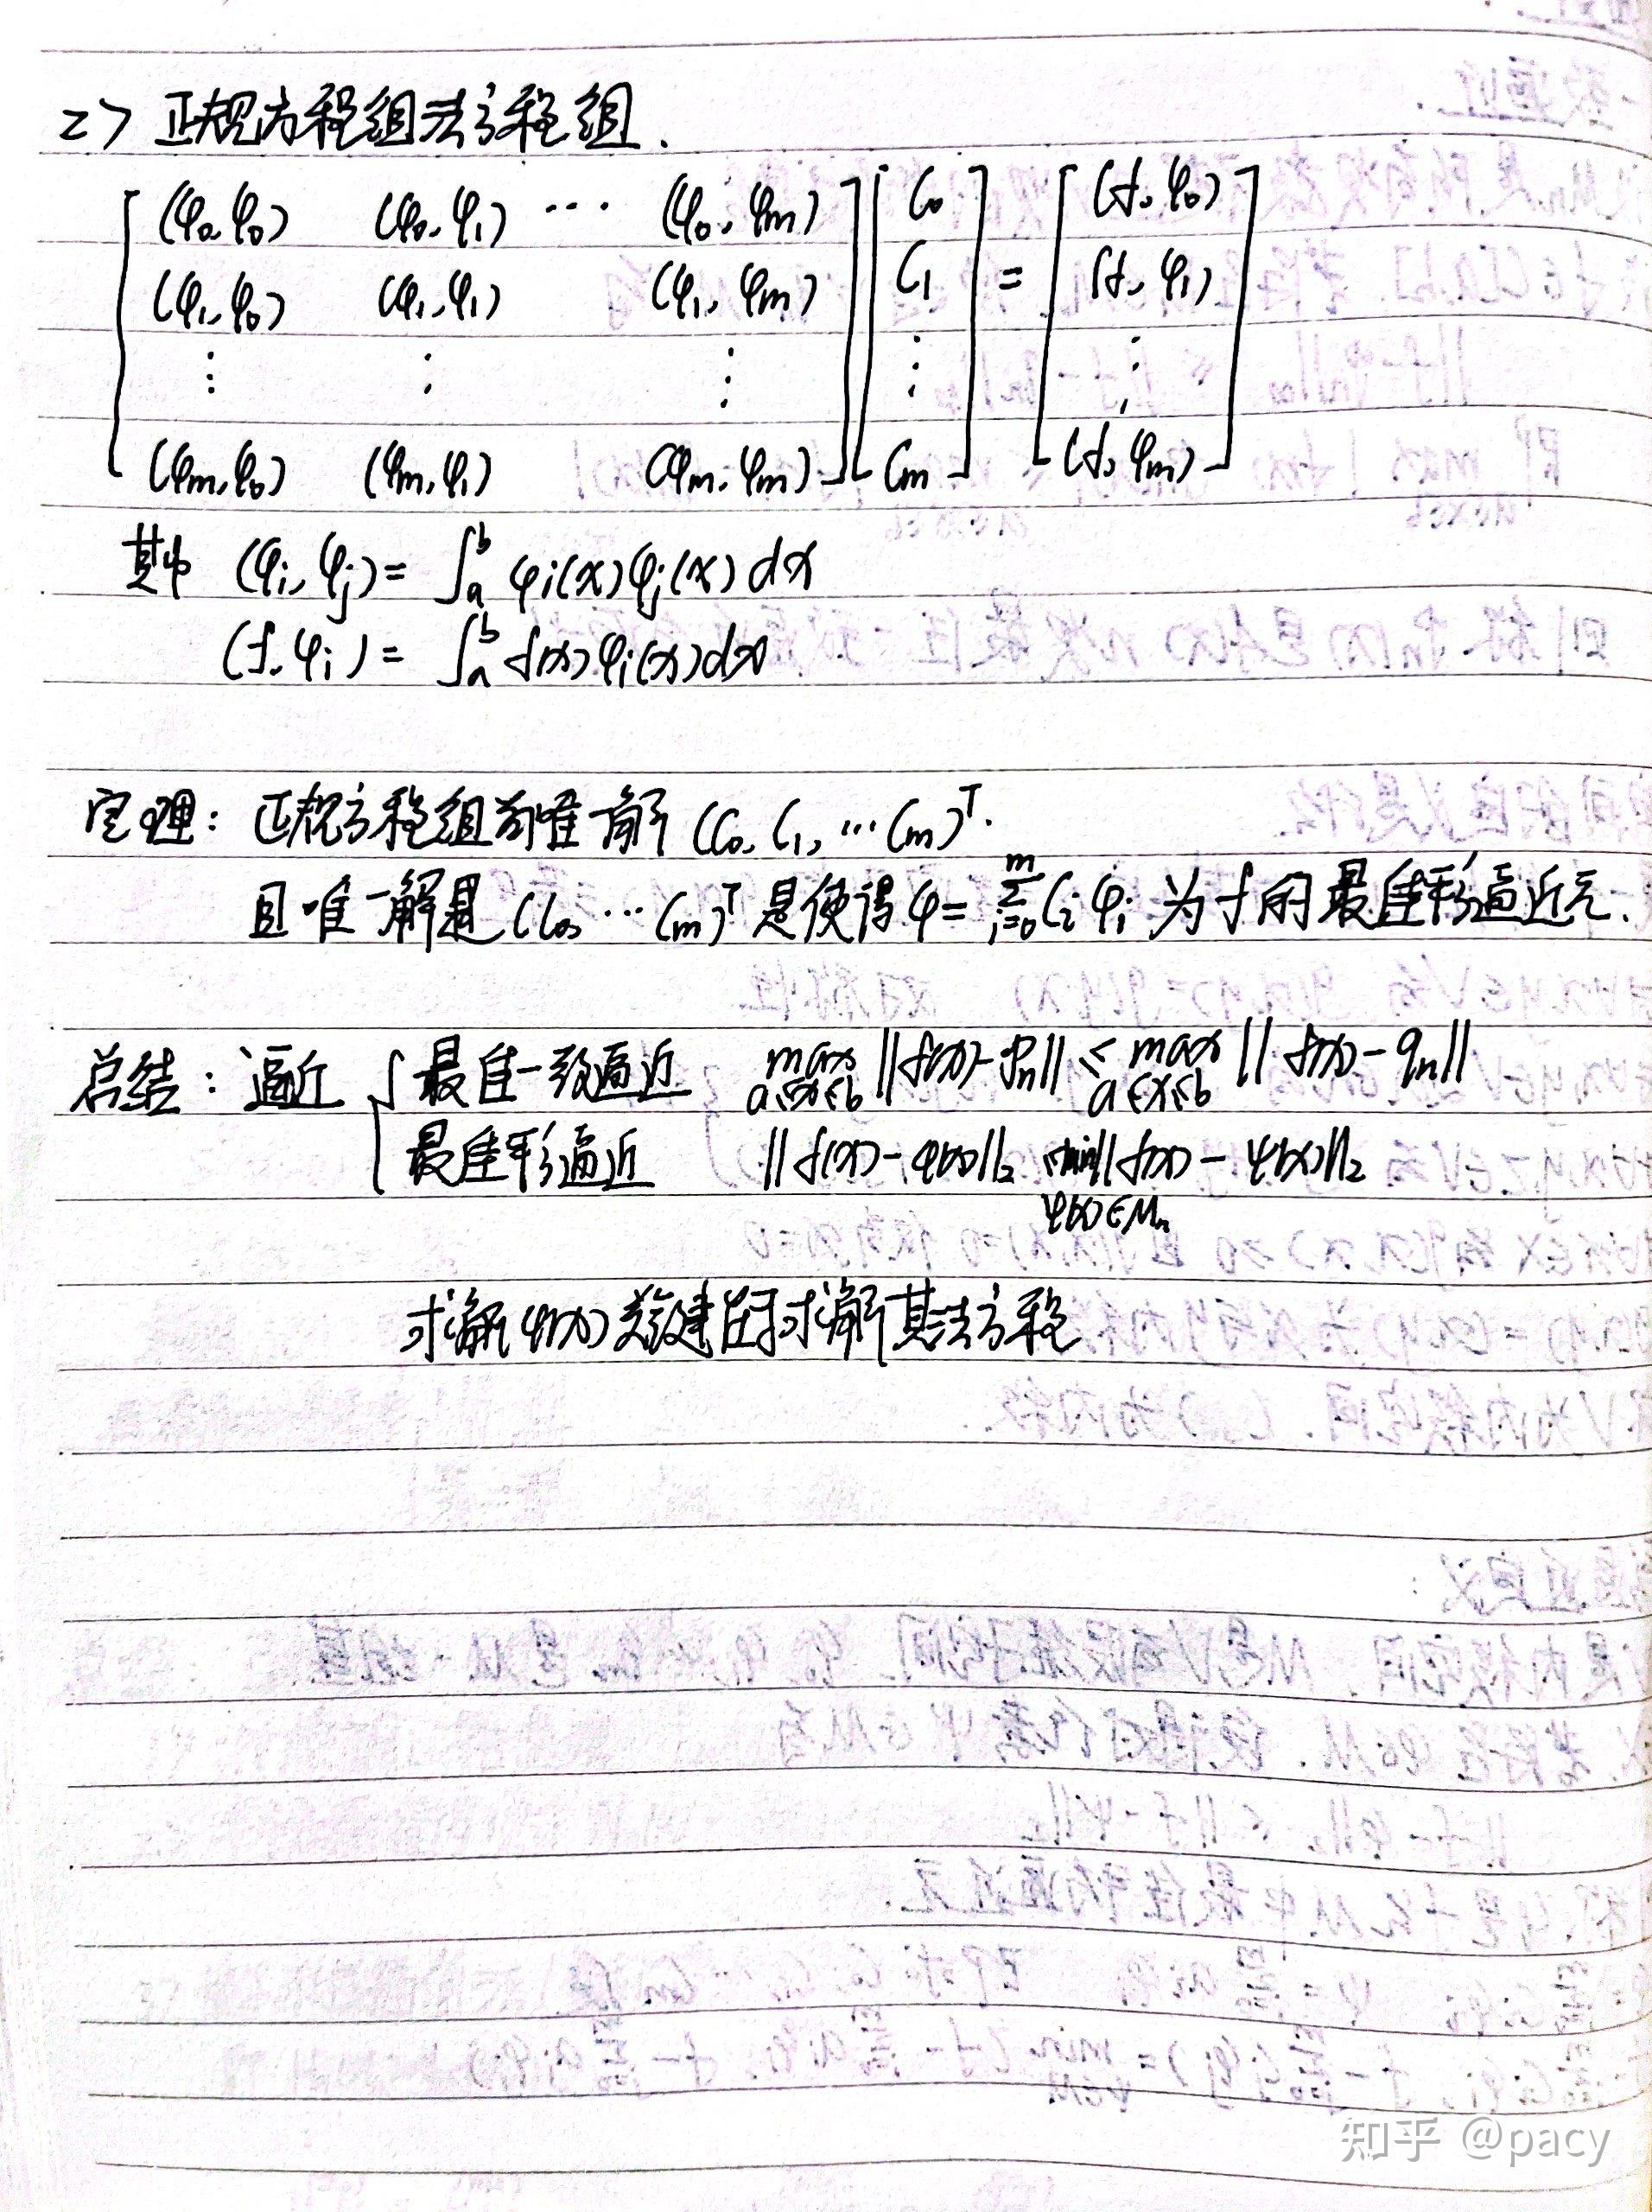 2> 正规方程组法方程组.
[ (φ0,φ0) (φ0,φ1) ⋯ (φ0,φm) ] [ C0 ] = [ (f,φ0) ]
(φ1,φ0) (φ1,φ1) (φ1,φm) C1 (f,φ1)
⋮ ⋮ ⋮ ⋮ ⋮
(φm,φ0) (φm,φ1) (φm,φm) Cm (f,φm)
其中 (φi,φj) = ∫_a^b φi(x)φj(x)dx
(f,φi) = ∫_a^b f(x)φi(x)dx
定理: 正规方程组有唯一解 (C0,C1,⋯Cm)^T.
且唯一解 (C0,⋯Cm)^T 是使得 φ=∑_{i=0}^{m} Ciφi 为f的最佳平方逼近元.
总结: 逼近 { 最佳一致逼近 max_{a≤x≤b} ||f(x)-Pn|| ≤ max_{a≤x≤b} ||f(x)-qn||
最佳平方逼近 ||f(x)-φ(x)||2 min_{ψ(x)∈Mn} ||f(x)-ψ(x)||2
求解φ(x)关键在于求解其法方程
知乎 @pacy